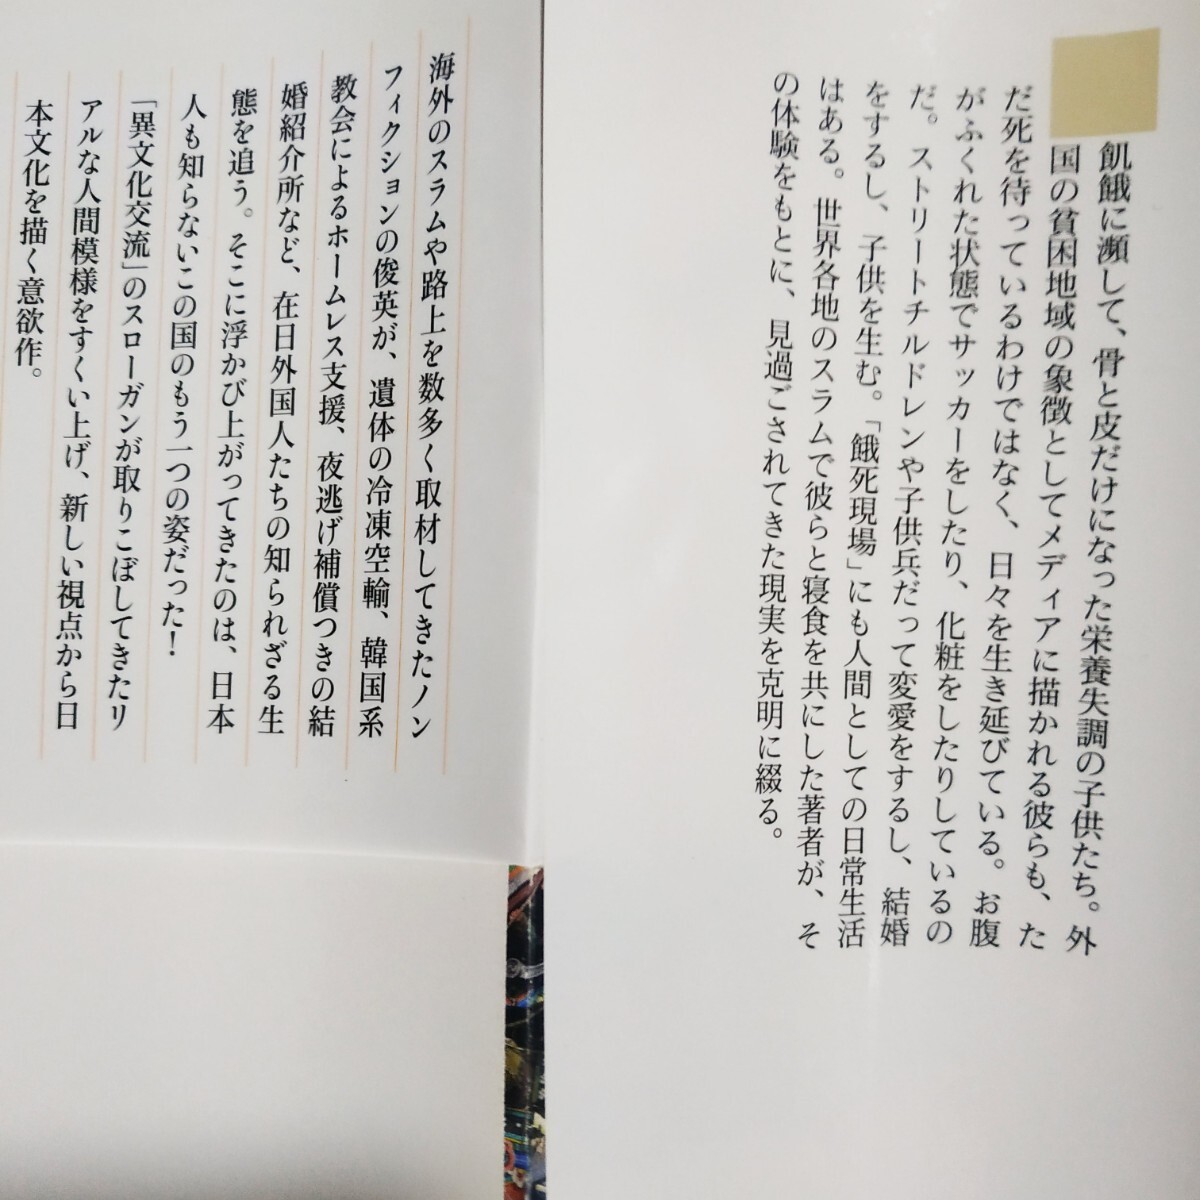 飢餓に瀕して、骨と皮だけになった栄養失調の子供たち。外
国の貧困地域の象徴としてメディアに描かれる彼らも、た
だ死を待っているわけではなく、日々を生き延びている。お腹
がふくれた状態でサッカーをしたり、化粧をしたりしているの
だ。ストリートチルドレンや子供兵だって変愛をするし、結婚
をするし、子供を生む。「餓死現場」にも人間としての日常生活
はある。世界各地のスラムで彼らと寝食を共にした著者が、そ
の体験をもとに、見過ごされてきた現実を克明に綴る。
海外のスラムや路上を数多く取材してきたノン
フィクションの俊英が、遺体の冷凍空輸、韓国系
教会によるホームレス支援、夜逃げ補償つきの結
婚紹介所など、在日外国人たちの知られざる生
態を追う。そこに浮かび上がってきたのは、日本
人も知らないこの国のもう一つの姿だった！
「異文化交流」のスローガンが取りこぼしてきたリ
アルな人間模様をすくい上げ、新しい視点から日
本文化を描く意欲作。